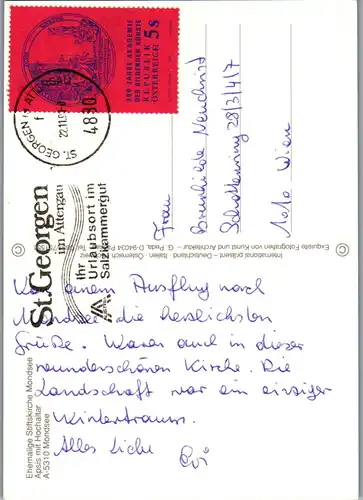 300 JAHRE AKADEMIE
DER BILDENDEN KÜNSTE
REPUBLIK
ÖSTERREICH 5s
ST. GEORGEN IM ATTERGAU
4880
St.Georgen
im Attergau
Ihr
Urlaubsort im
Salzkammergut
Frau
Brunhilde
Schottenring 28/3/4/7
1010 Wien
International präsent – Deutschland · Italien · Österreich
Exquisite Fotografien von Kunst und Architektur – G. Peda, D-94034
Von einem Ausflug nach
Mondsee die herzlichsten
Grüße. Waren auch in dieser
wunderschönen Kirche. Die
Landschaft war ein einziger
Wintertraum.
Alles Liebe
Evi
Ehemalige Stiftskirche Mondsee
Apsis mit Hochaltar
A-5310 Mondsee